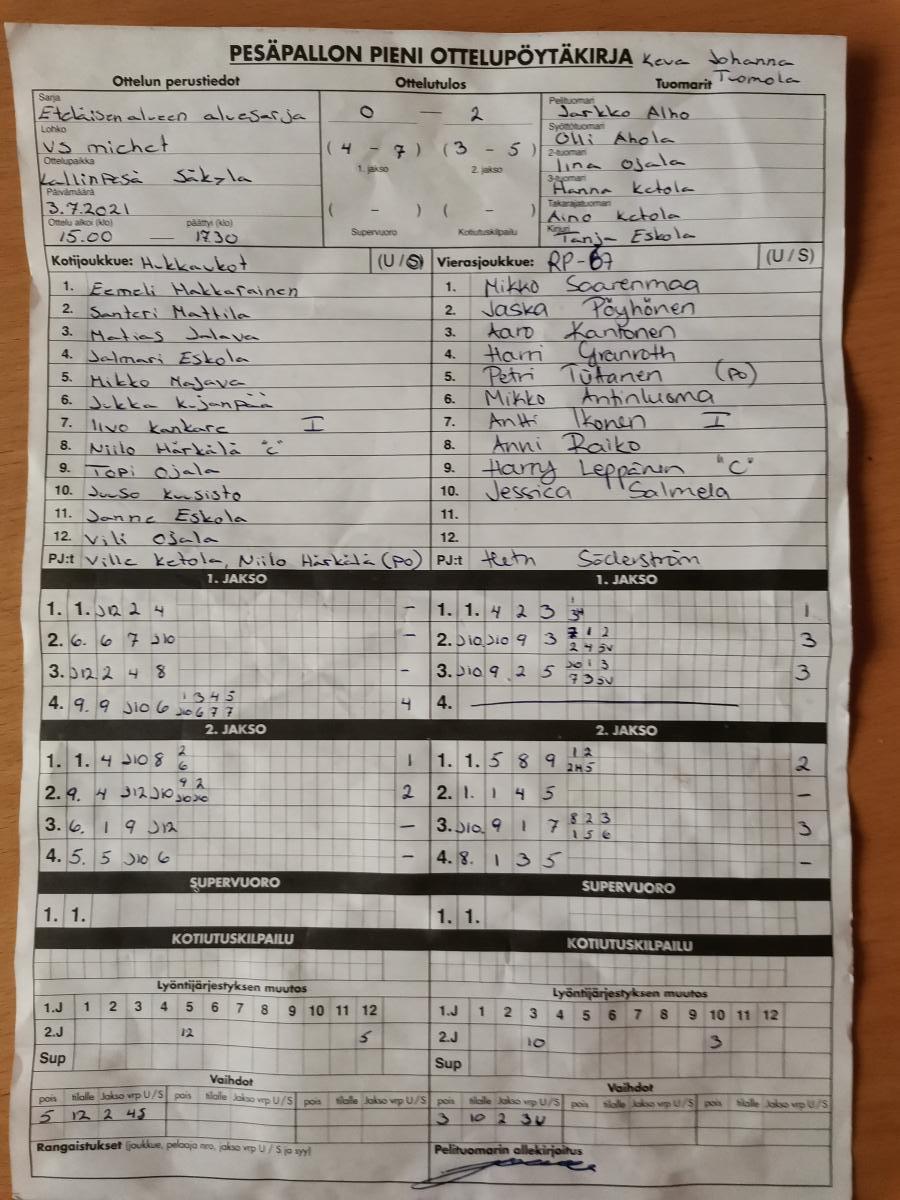 PESÄPALLON PIENI OTTELUPÖYTÄKIRJA Keva Johanna Tuomola
Ottelun perustiedot Ottelutulos Tuomarit
Sarja
Eteläisen alueen aluesarja 0 — 2
Pelituomari
Jarkko Alho
Lohko
vs miehet (4 - 7) (3 - 5)
1. jakso 2. jakso
Syöttötuomari
Olli Ahola
Ottelupaikka
Kallinpesä Säkylä
2-tuomari
Iina Ojala
3-tuomari
Hanna Ketola
Päivämäärä
3.7.2021 ( - ) ( - )
Supervuoro Kotiutuskilpailu
Takarajatuomari
Aino Ketola
Ottelu alkoi (klo) päättyi (klo)
15.00 — 17.30
Kirjuri
Tanja Eskola
Kotijoukkue: Hukkaukot (U / S) Vierasjoukkue: RP-67 (U / S)
1. Eemeli Makkarainen 1. Mikko Saarenmaa
2. Santeri Mattila 2. Jaska Pöyhönen
3. Matias Jalava 3. Aaro Kantonen
4. Jalmari Eskola 4. Harri Granroth
5. Mikko Majava 5. Petri (PO)
6. Jukka Kujanpää 6. Mikko Antinluoma
7. Iivo Kankare I 7. Antti Ikonen I
8. Niilo Härkälä "C" 8. Anni Raiko
9. Topi Ojala 9. Harry Leppänen "C"
10. Juuso Kuusisto 10. Jessica Salmela
11. Janne Eskola 11.
12. Vili Ojala 12.
PJ:t Ville Ketola, Niilo Härkälä (PO) PJ:t Söderström
1. JAKSO 1. JAKSO
1. 1. J12 2 4 - 1. 1. 4 2 3 1
2. 6. 6 7 J10 - 2. J10. J10 9 3 7 1 2 2 4 5V 3
3. J12 2 4 8 - 3. J10 9 2 5 J10 1 3 7 3 5V 3
4. 9. 9 J10 6 1 3 4 5 J10 6 7 7 4 4.
2. JAKSO 2. JAKSO
1. 1. 4 J10 8 2 6 1 1. 1. 5 8 9 1 2 2
2. 9. 4 J12 J10 9 2 J10 J10 2 2. 1. 1 4 5 -
3. 6. 1 9 J12 - 3. J10. 9 1 7 8 2 3 1 5 6 3
4. 5. 5 J10 6 - 4. 8. 1 3 5 -
SUPERVUORO SUPERVUORO
1. 1. 1. 1.
KOTIUTUSKILPAILU KOTIUTUSKILPAILU
Lyöntijärjestyksen muutos Lyöntijärjestyksen muutos
1.J 1 2 3 4 5 6 7 8 9 10 11 12 1.J 1 2 3 4 5 6 7 8 9 10 11 12
2.J 12 5 2.J 10 3
Sup Sup
Vaihdot Vaihdot
pois tilalle Jakso vrp U / S pois tilalle Jakso vrp U / S pois tilalle Jakso vrp U / S pois tilalle Jakso vrp U / S pois tilalle Jakso vrp U / S pois tilalle Jakso vrp U / S
5 12 2 4S 3 10 2 3U
Rangaistukset (joukkue, pelaaja nro, jakso vrp U / S ja syy) Pelituomarin allekirjoitus